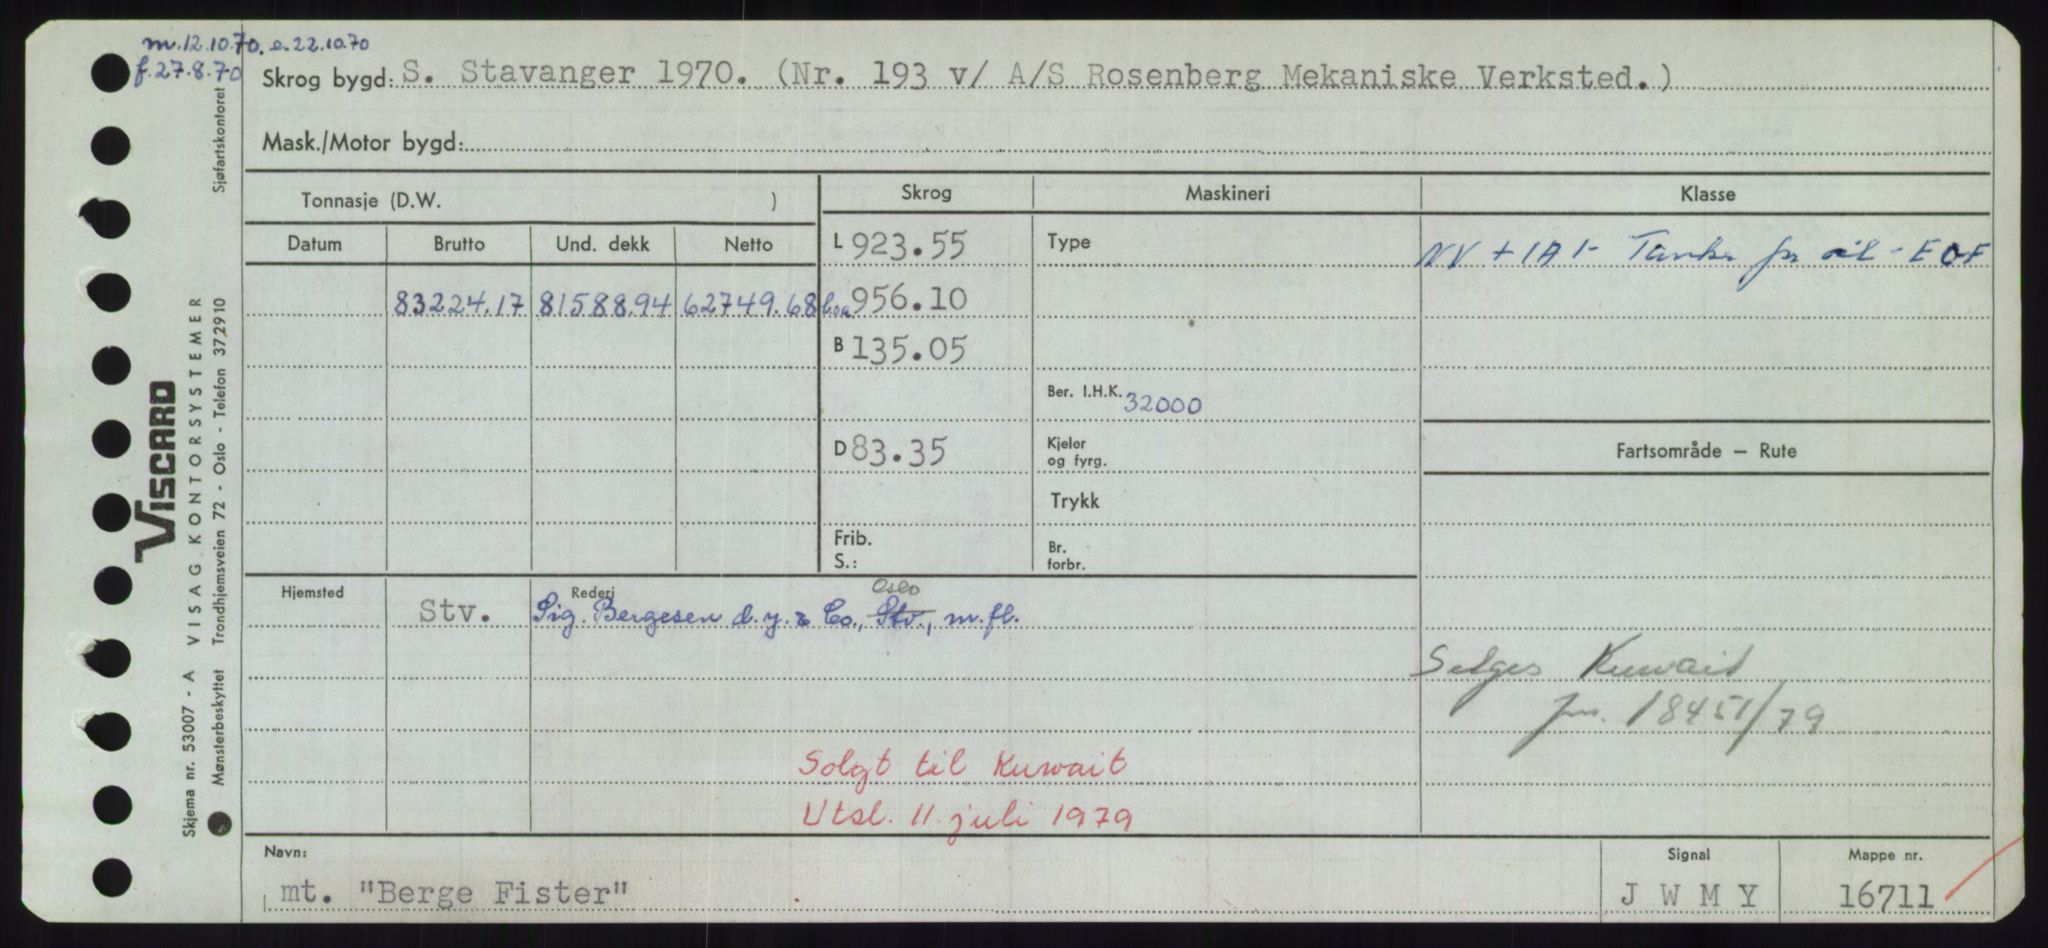 m.12.10.70. e.22.10.70
f.27.8.70
Skrog bygd: S. Stavanger 1970. (Nr. 193 v/ A/S Rosenberg Mekaniske Verksted.)
Mask./Motor bygd:
Tonnasje (D.W. )
Skrog
Maskineri
Klasse
Datum Brutto Und. dekk Netto
L 923.55
Type
NV + 1A1- Tanker for oil - EOF
83224.17 81588.94 62749.68
loa 956.10
B 135.05
Ber. I.H.K. 32000
D 83.35
Kjeler og fyrg.
Fartsområde — Rute
Trykk
Frib.
S.:
Br. forbr.
Hjemsted
Rederi
Oslo
Stv. Sig. Bergesen d.y. & Co., Stv., m.fl.
Selges Kuwait
jnr. 18451/79
Solgt til Kuwait
Utsl. 11. juli 1979
Navn:
mt. "Berge Fister"
Signal
J W M Y
Mappe nr.
16711
VISCARD
Skjema nr. 53007 - A VISAG KONTORSYSTEMER
Mønsterbeskyttet Trondhjemsveien 72 - Oslo - Telefon 37 29 10 Sjøfartskontoret